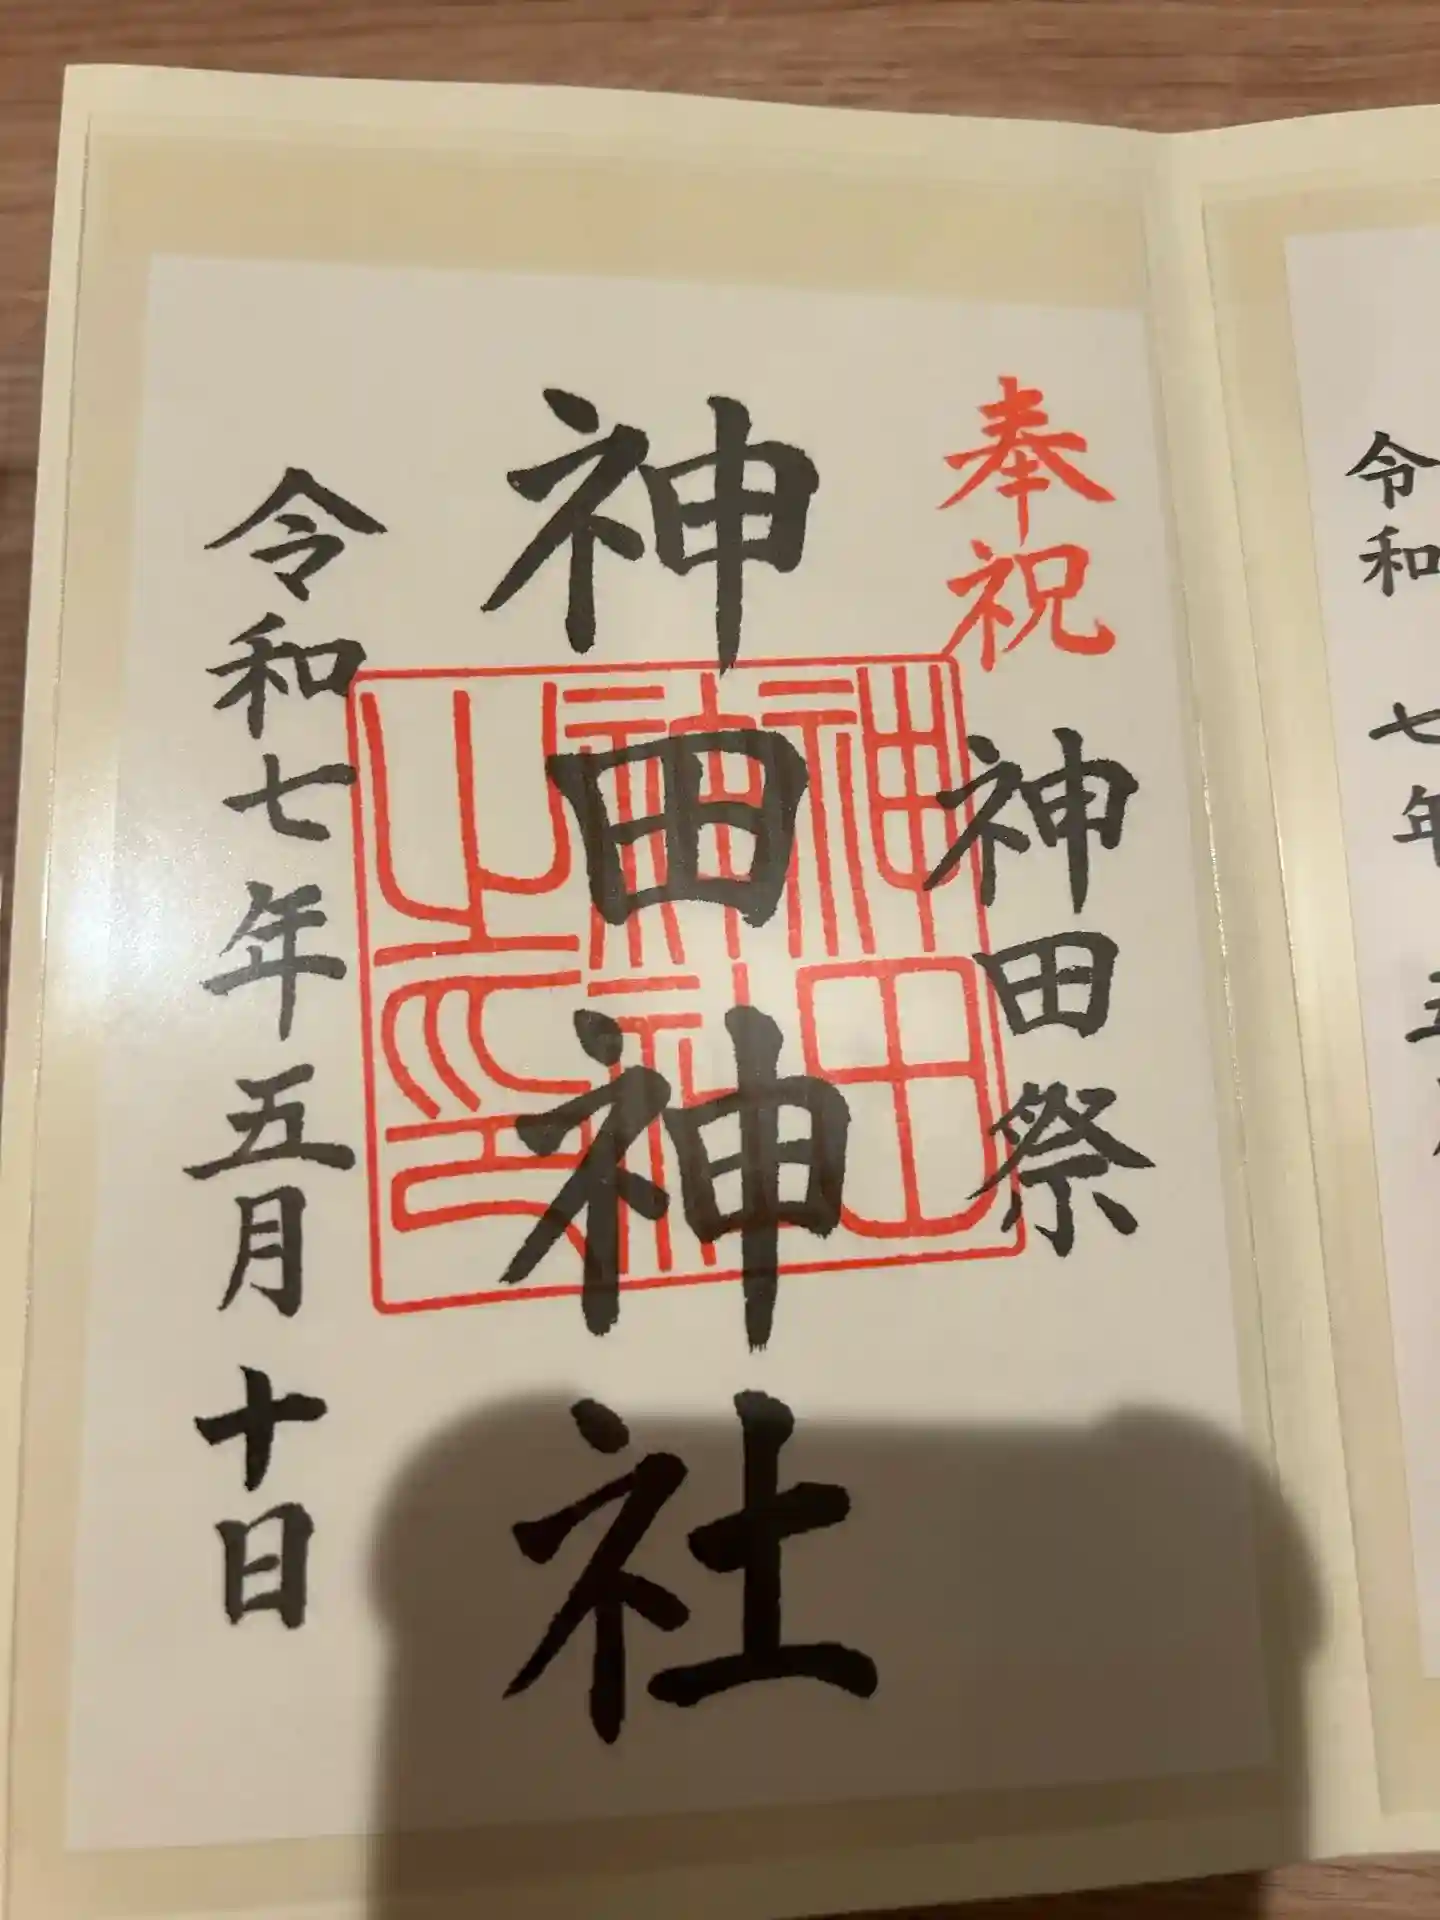 奉祝
神田祭
神田神社
神田神社之印
令和七年五月十日
令和七年